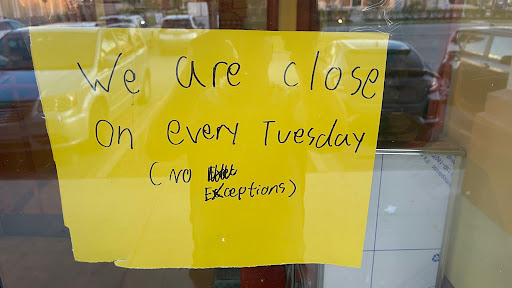 We are close
on every Tuesday
(NO
Exceptions)